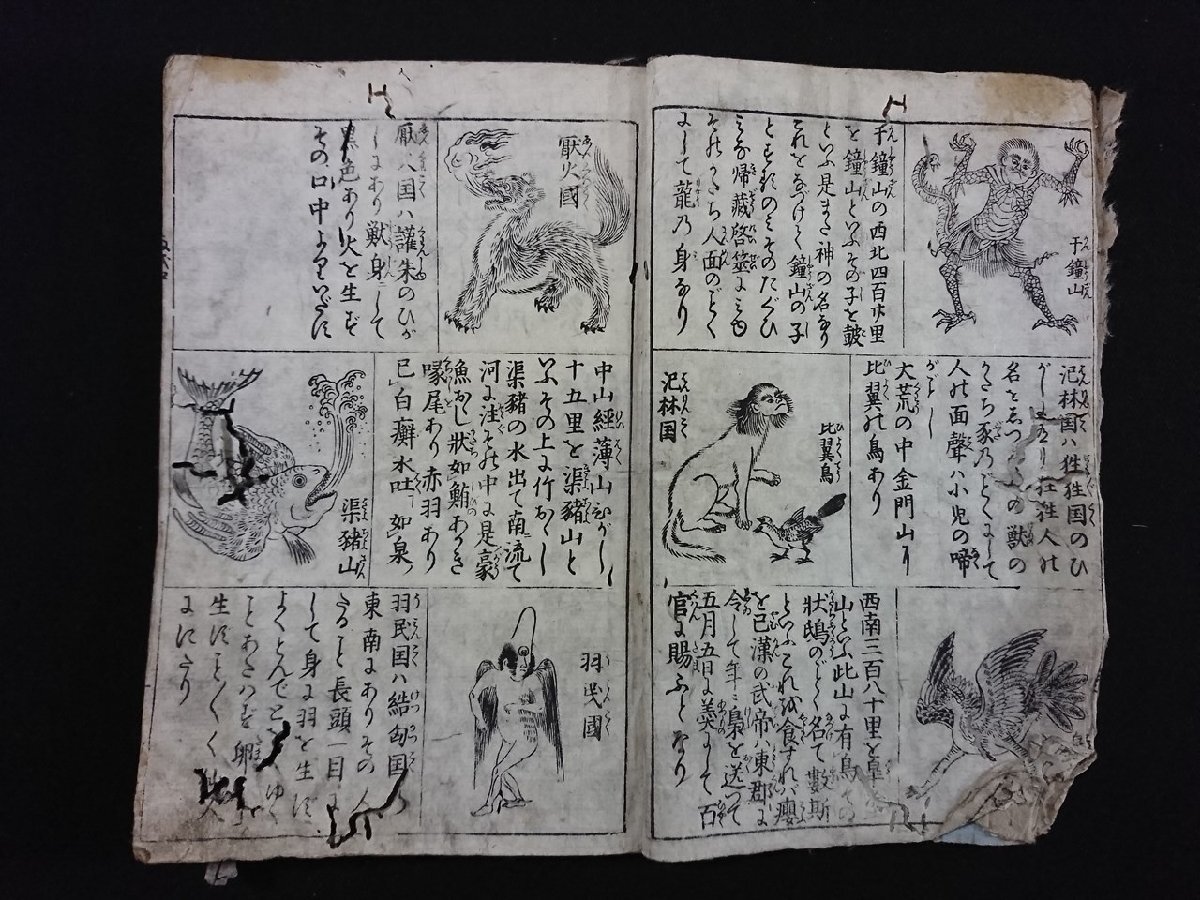 于鐘山
于鐘山の西北四百廿里
を鐘山といふその子を皷
といふ是また神の名なり
これをなづけて鐘山の子
とするのみそのたぐひ
みな帰藏啓筮にみゆ
そのかたち人面のごとく
にして龍乃身なり
厭火國
厭火国ハ讙朱のひが
しにあり獣身にして
黒色あり火を生ず
その口中よりいだす
氾林国ハ狌狌国のひ
がし
名を
かたち豕乃ごとくにして
人の面聲ハ小児の啼
がごとし
大荒の中金門山に
比翼の鳥あり
比翼鳥
氾林国
中山經薄山ひがし
十五里を渠豬山と
いふその上に竹おほし
渠豬の水出て南流て
河に注その中に是豪
魚おほし狀如鮪あかき
喙尾あり赤羽あり
已白癬水吐如泉
渠豬山
西南三百八十里を皐
山といふ此山に有鳥その
狀鴟のごとく名て數斯
といふこれを食すれバ癭
を已漢の武帝ハ東郡に
令して年々梟を送つて
五月五日に羮にして百
官に賜ふとなり
羽民國
羽民国ハ結匈国の
東南にありその人
たること長頭一目に
して身に羽を生ず
よくとんでとを
ことあたハず卵
生す
ににたり